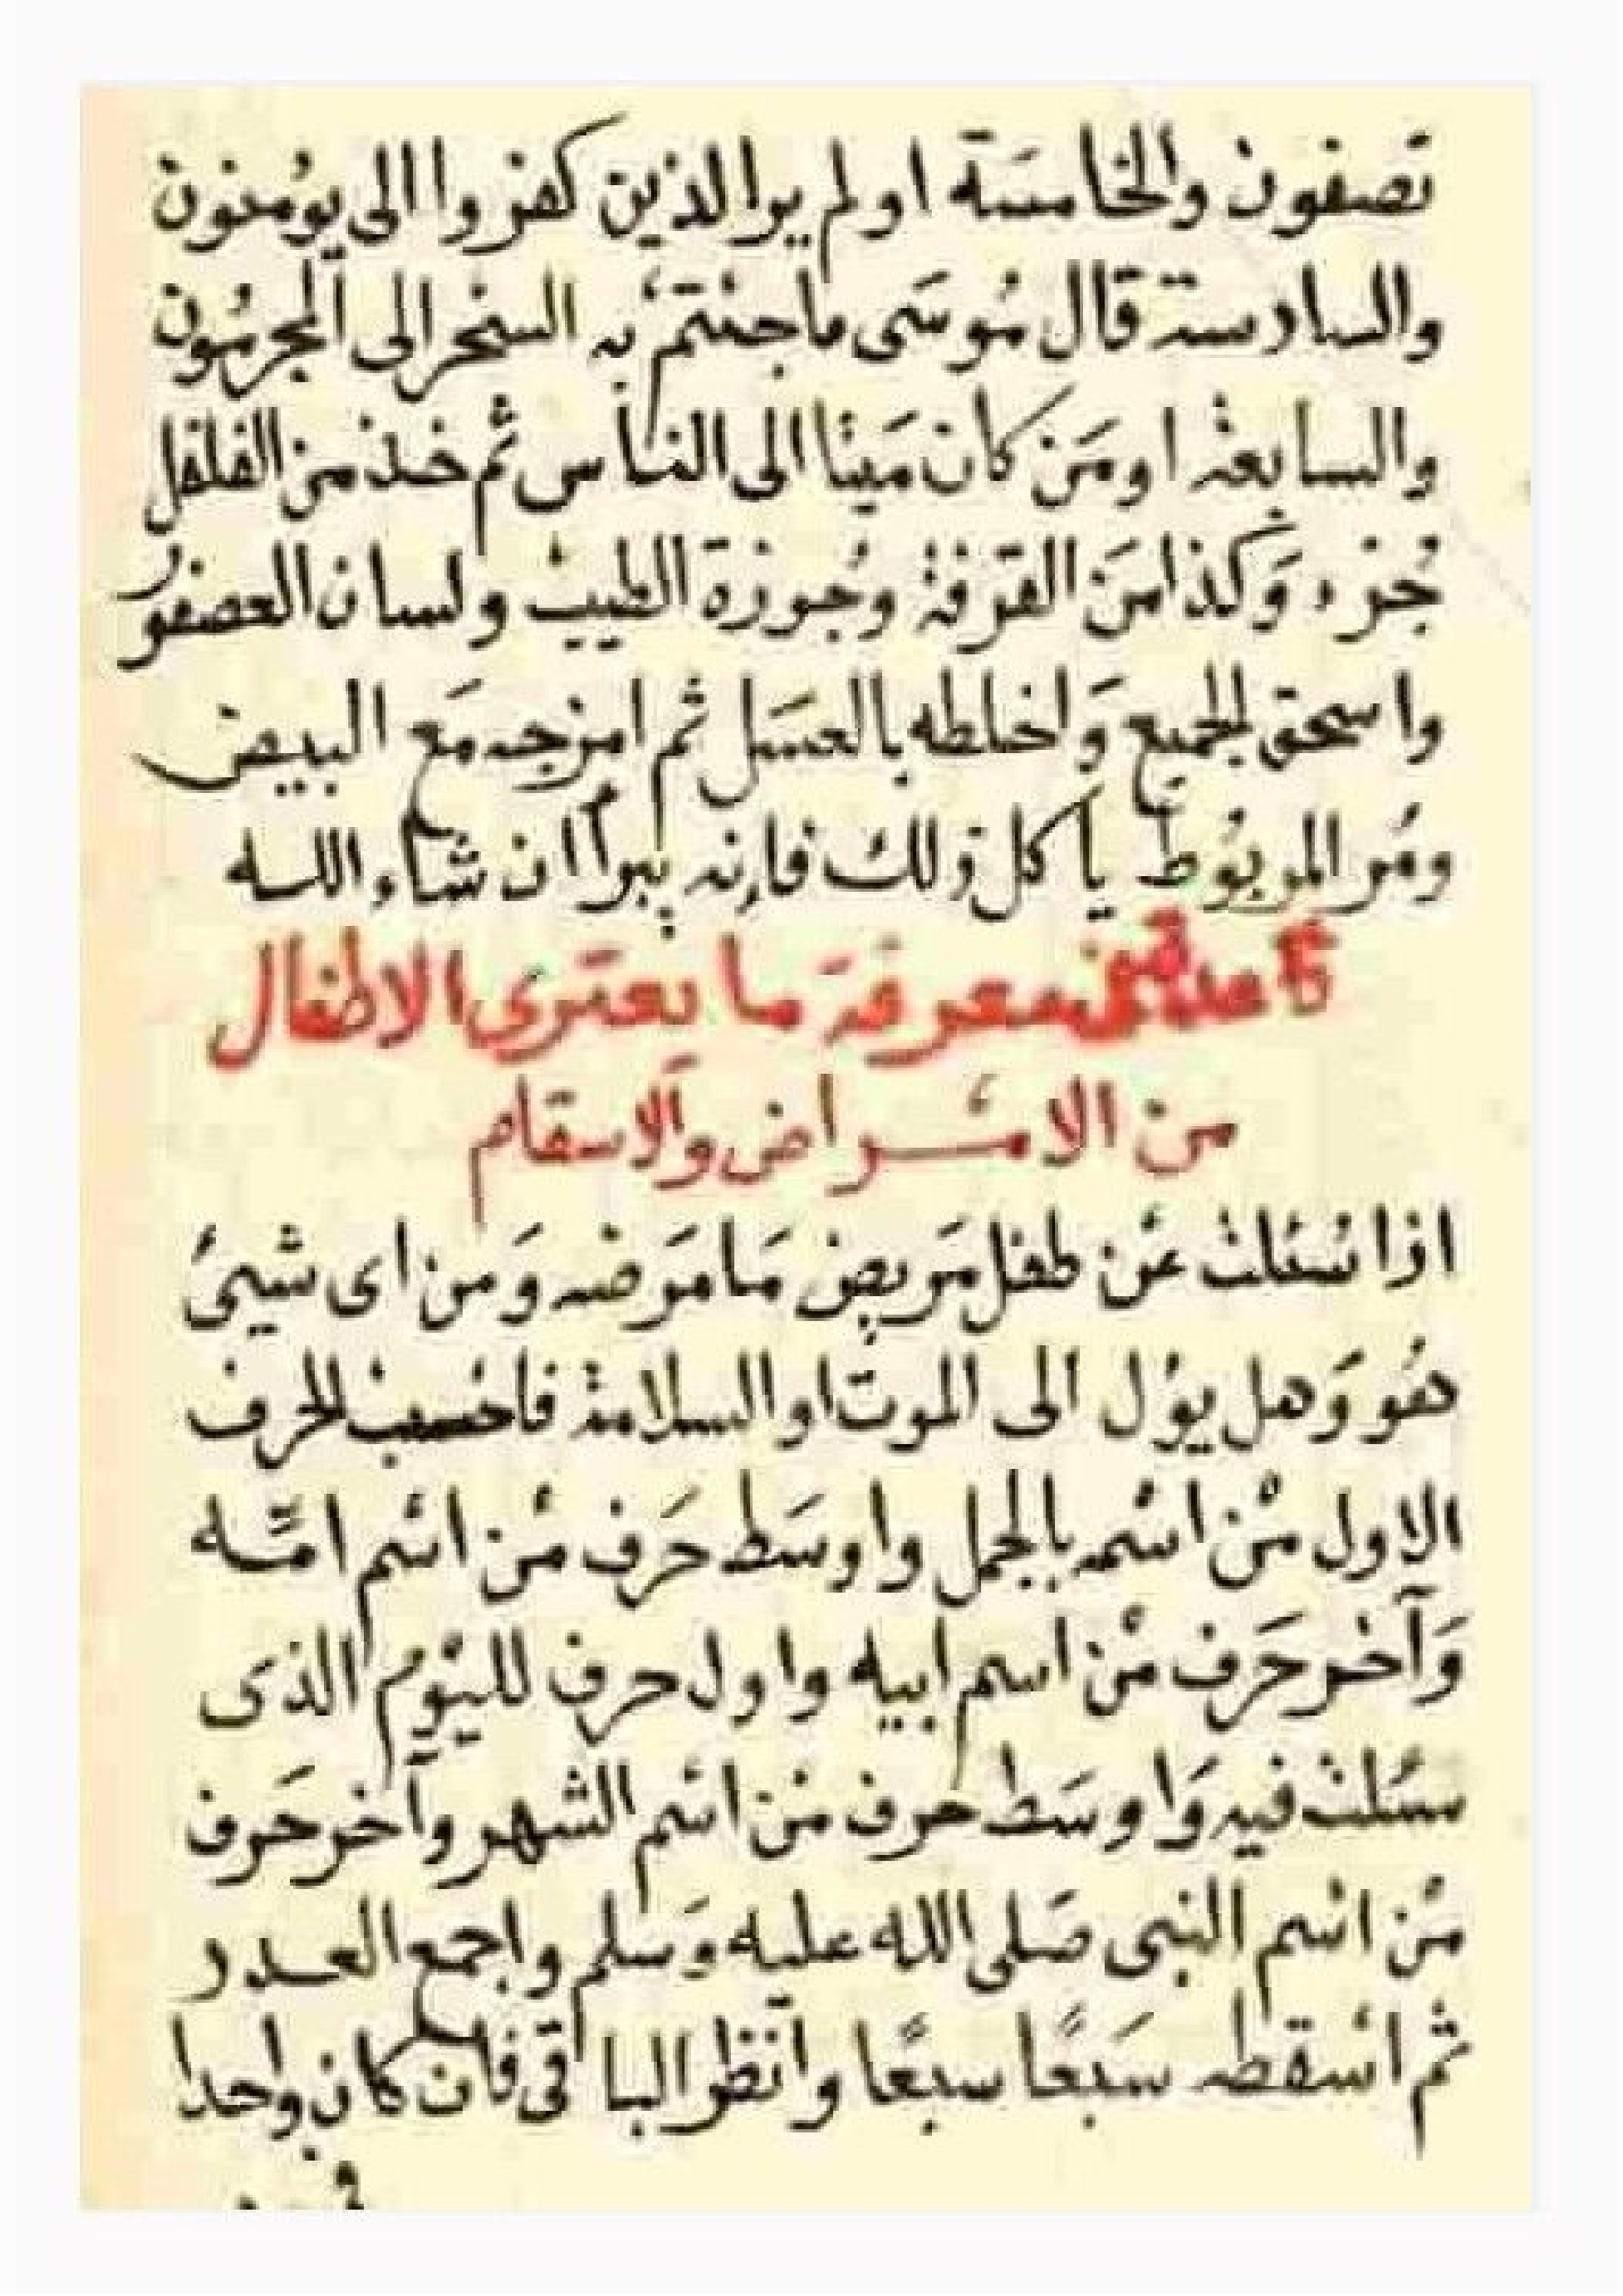 تصفون والخامسة اولم يرا الذين كفروا الى يؤمنون
والسادسة قال مُوسَى ما جئتم به السحر الى المجرمُون
والسابعة اومَن كان مَيتا الى الناس ثم خذ من الفلفل
جُزء وَكذا مَن القرفة وجُوزة الطيب ولسان العصفور
واسحق الجميع وَاخلطه بالعسَل ثم امزجه مَع البيض
ومُر المربُوط ياكل ذلك فإنه يبرأ ان شاء الله
قاعدة فى معرفة ما يعترى الاطفال
من الامراض والاسقام
اذا سُئلت عَن طفل مَريض مَا مَرَضه وَمن اى شيئ
هُو وَهل يؤل الى الموت او السلامة فاحسب الحرف
الاول مْن اسْمه بالجمل واوسَط حَرف مْن اسْم امّه
وَآخر حَرف مْن اسم ابيه واول حرف لليَوْم الذى
سئلت فيه وَاوسَط حرف مْن اسْم الشهر وآخر حَرف
مْن اسْم النبى صَلى الله عليه وَسَلم واجمع العدد
ثم اسْقطه سَبعًا سبعًا وانظر الباقى فان كان واحدا